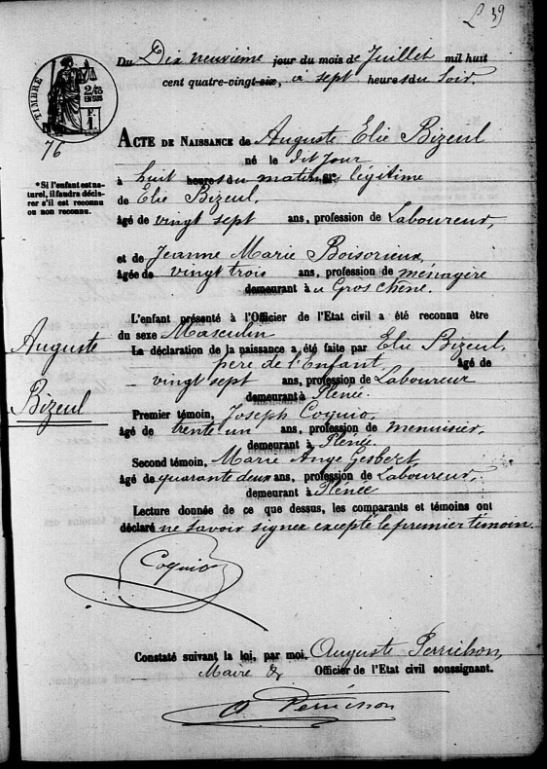 L 39
Du Dix neuvième jour du mois de Juillet mil huit
cent quatre-vingt-six, à sept heures du Soir.
TIMBRE
2/10
EN SUS
F.
1.
76
ACTE DE NAISSANCE de Auguste Elie Bizeul
né le dit jour
à huit heures du matin, fils légitime
* Si l'enfant est na-
turel, il faudra décla-
rer s'il est reconnu
ou non reconnu.
de Elie Bizeul,
âgé de vingt sept ans, profession de Laboureur,
et de Jeanne Marie Boisorieux,
âgée de vingt trois ans, profession de ménagère
demeurant à Gros Chêne.
L'enfant présenté à l'Officier de l'Etat civil a été reconnu être
du sexe Masculin
La déclaration de la naissance a été faite par Elie Bizeul,
père de l'Enfant, âgé de
vingt sept ans, profession de Laboureur
demeurant à Plénée
Auguste
Bizeul
Premier témoin, Joseph Coquio,
âgé de trente un ans, profession de menuisier,
demeurant à Plénée
Second témoin, Marie Ange Gesbert
âgé de quarante deux ans, profession de Laboureur,
demeurant à Plénée
Lecture donnée de ce que dessus, les comparants et témoins ont
déclaré ne savoir signer excepté le premier témoin.
Coquio
Constaté suivant la loi, par moi, Auguste Perrichon,
Maire & Officier de l'Etat civil soussignant.